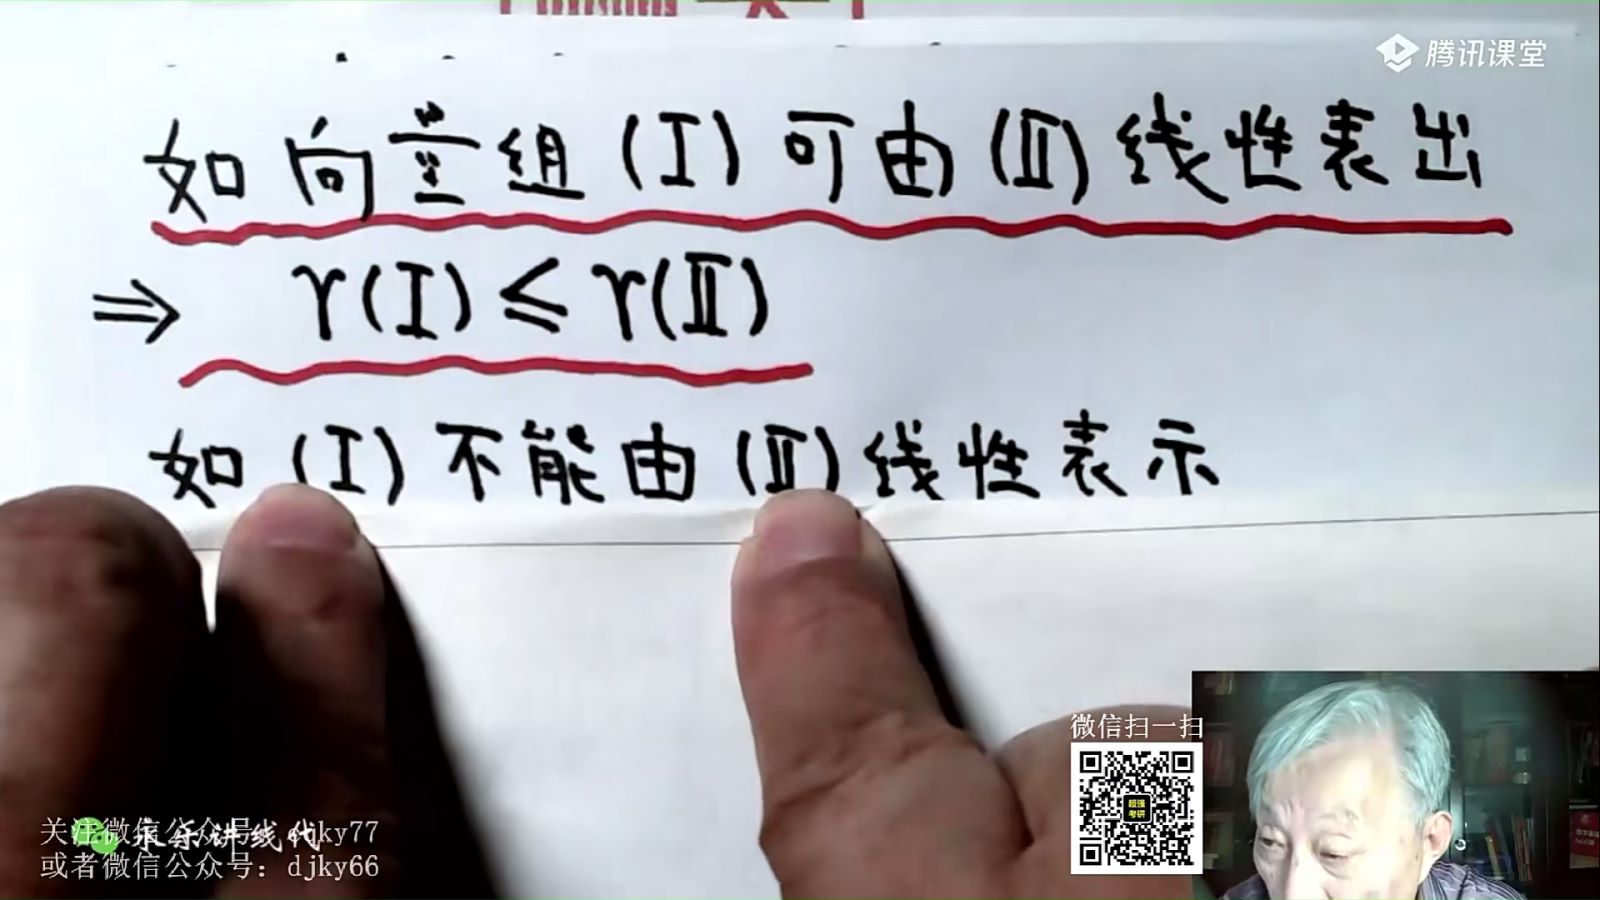 腾讯课堂
如向量组(Ⅰ)可由(Ⅱ)线性表出
⇒ γ(Ⅰ)≤γ(Ⅱ)
如(Ⅰ)不能由(Ⅱ)线性表示
微信扫一扫
超强
考研
关注微信公众号:
ky77
永乐讲线代
或者微信公众号:djky66